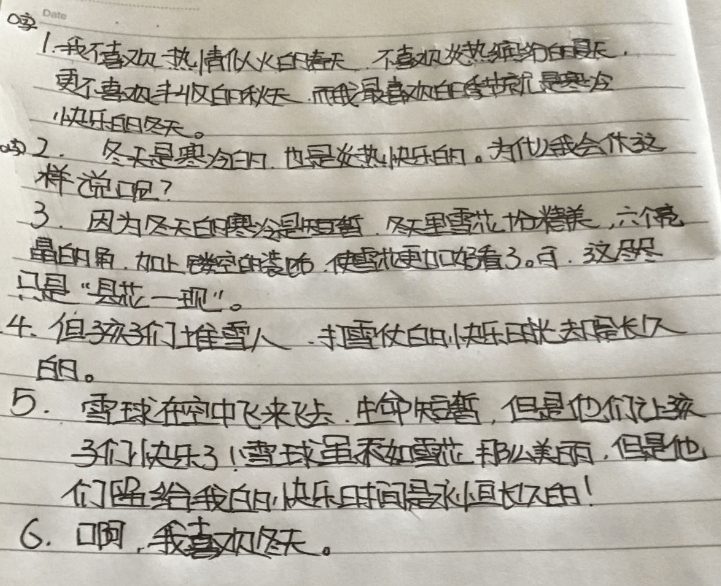 Date
1.我不喜欢热情似火的春天,不喜欢炎热缤纷的夏天,
更不喜欢丰收的秋天,而我最喜欢的季节就是寒冷
快乐的冬天。
2. 冬天是寒冷的,也是炎热快乐的。为什么我会作这
样说呢?
3. 因为冬天的寒冷是短暂,冬天里雪花恰精美,六个亮
晶的角,加上镂空的装饰,使雪花更加好看了。可,这尽尽
只是“昙花一现”。
4. 但孩子们堆雪人,打雪仗的快乐时光却是长久
的。
5. 雪球在空中飞来飞去,生命短暂,但是他们让孩
子们快乐了!雪球虽不如雪花那么美丽,但是他
们留给我的快乐时间是永恒长久的!
6. 啊,我喜欢冬天。